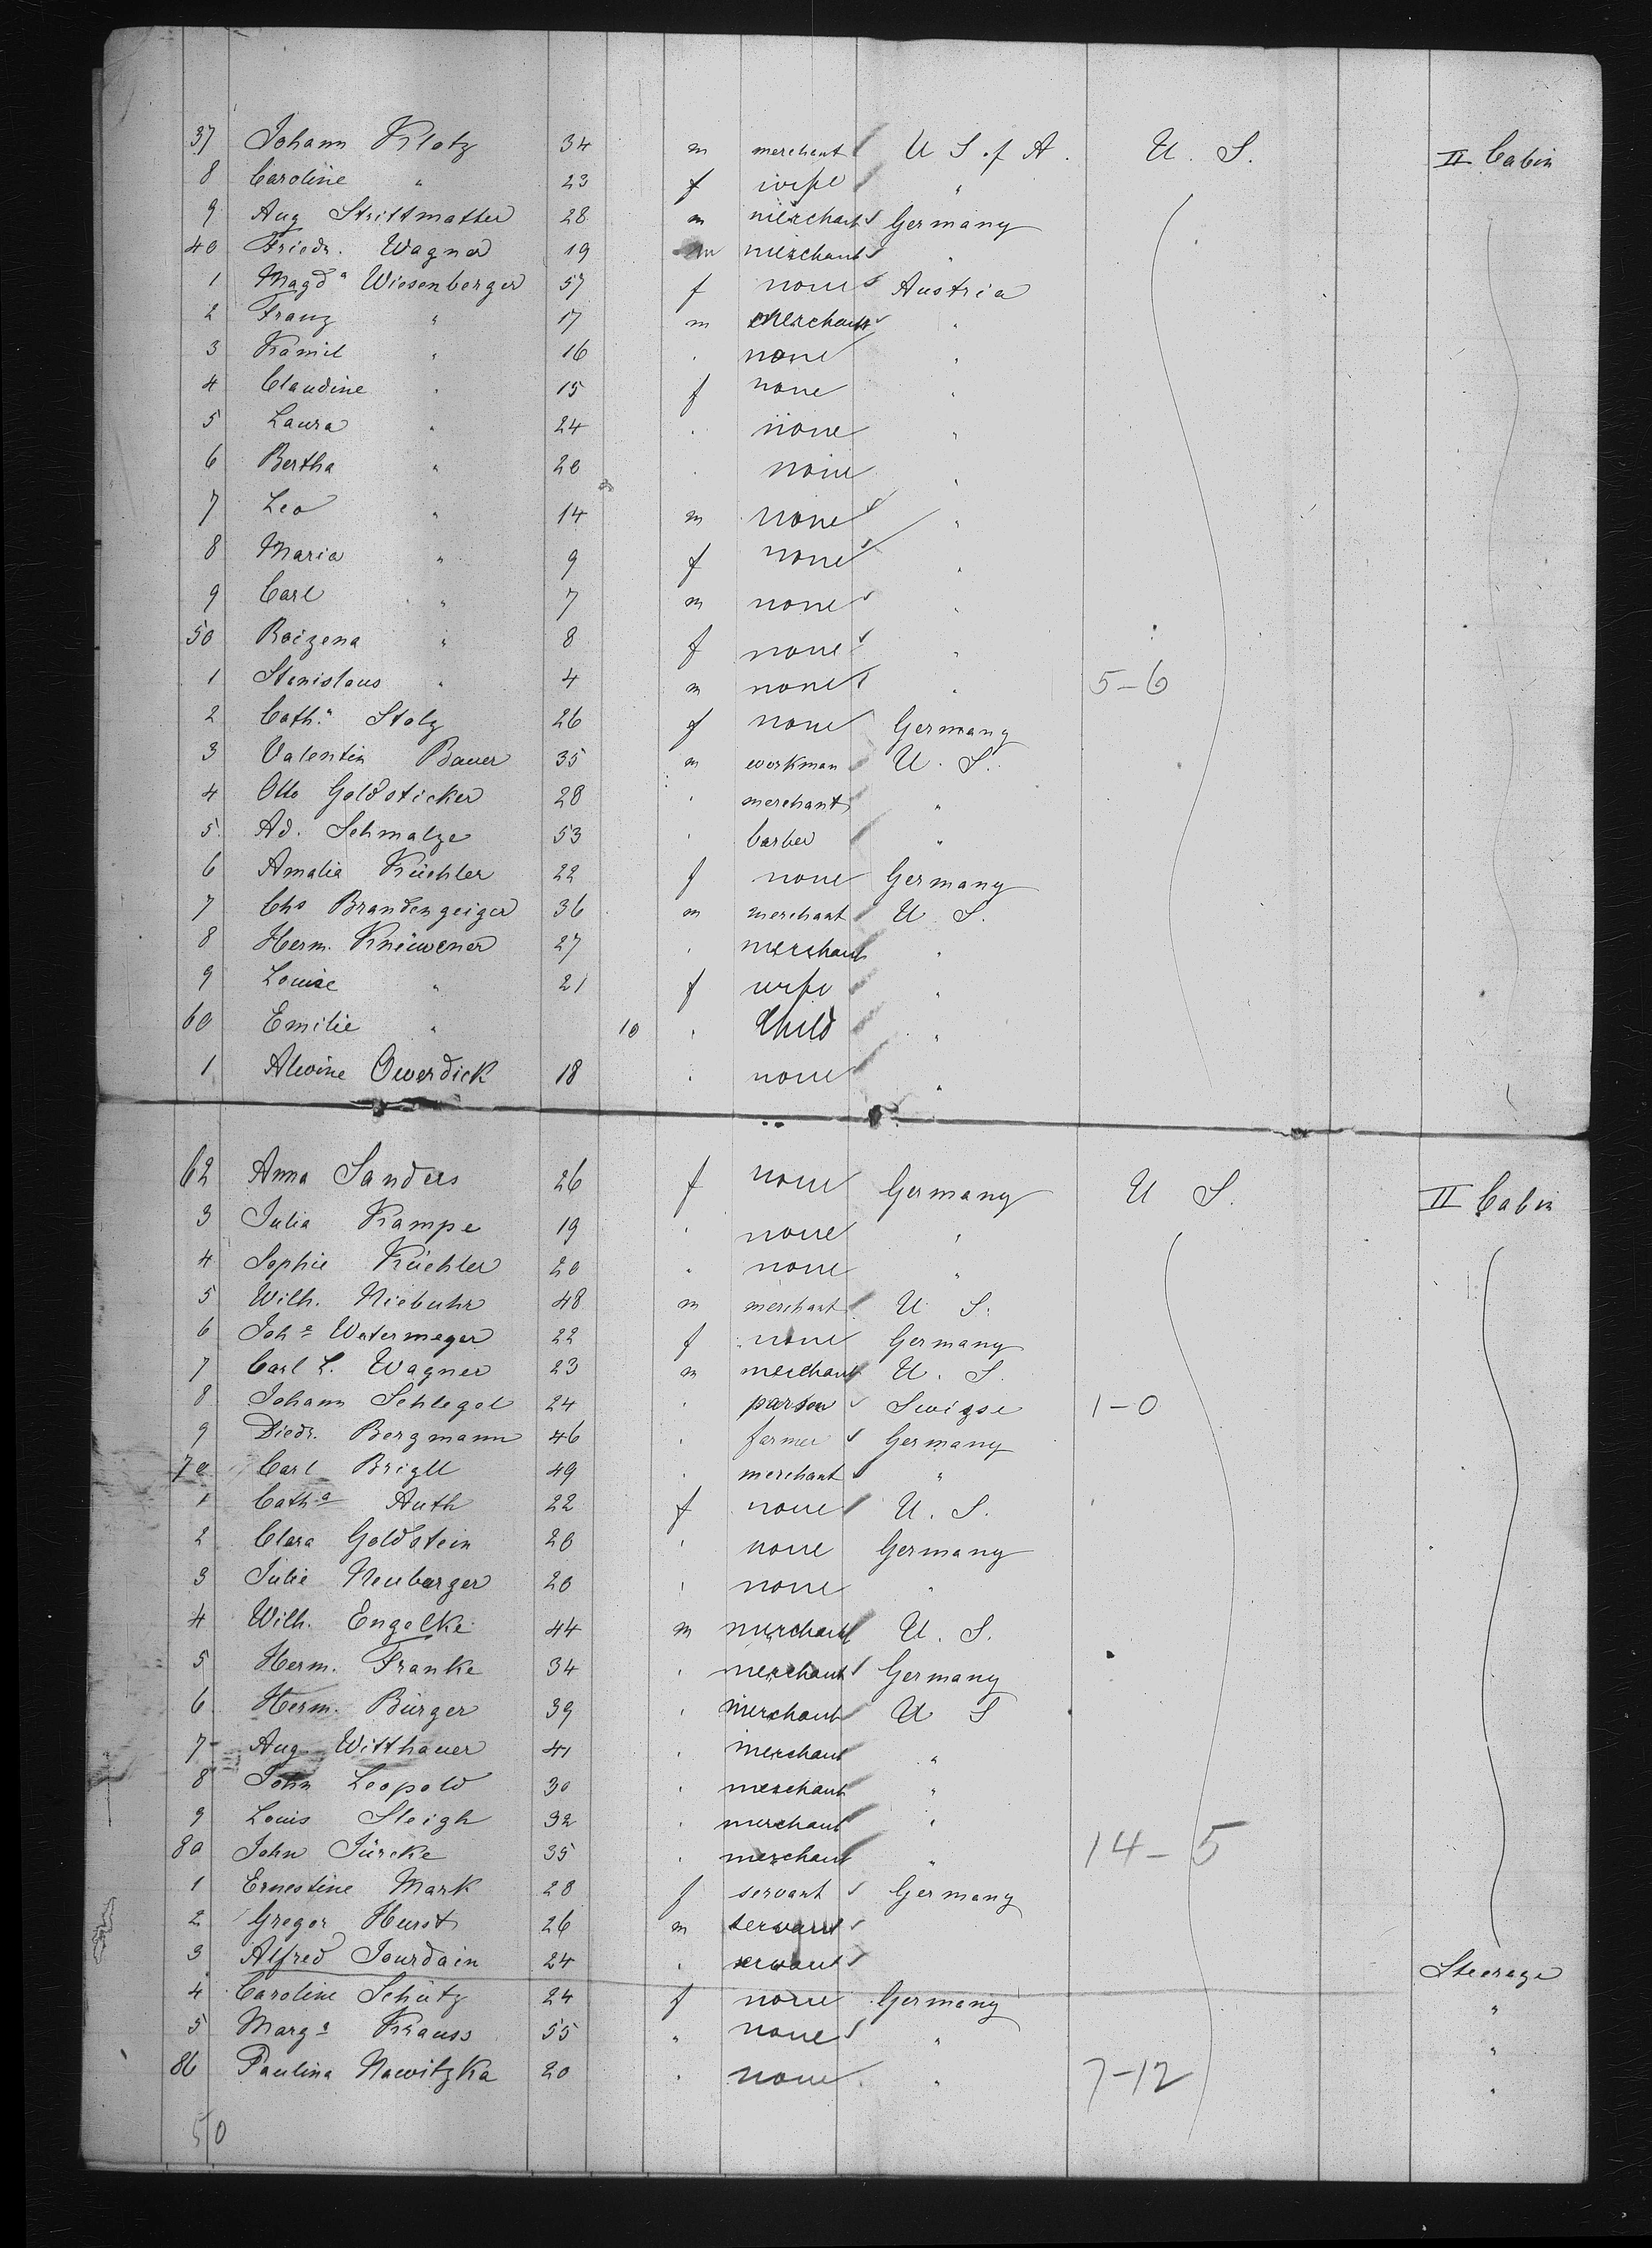 37 Johann Klotz 34 m merchant U S. of A. U. S. II Cabin
8 Caroline " 23 f wife "
9 Aug Strittmatter 28 m merchant Germany
40 Friedr. Wagner 19 m merchant "
1 Magda Wiesenberger 57 f none Austria
2 Franz " 17 m merchant "
3 Kamil " 16 " none "
4 Claudine " 15 f none "
5 Laura " 24 " none "
6 Bertha " 20 " none "
7 Leo " 14 m none "
8 Maria " 9 f none "
9 Carl " 7 m none "
50 Roizena " 8 f none "
1 Stanislaus " 4 m none " 5-6
2 Cath.a Stolz 26 f none Germany
3 Valentin Bauer 35 m workman U. S.
4 Otto Goldsticker 28 " merchant "
5 Ad. Schmalze 53 " barber "
6 Amalia Küchler 22 f none Germany
7 Chs Brandengeiger 36 m merchant U. S.
8 Herm. Knüwener 27 " merchant "
9 Louise " 21 f wife "
60 Emilie " 10 " Child "
1 Alwine Owerdick 18 " none "
62 Anna Sanders 26 f none Germany U S. II Cabin
3 Julia Kampe 19 " none "
4 Sophie Küchler 20 " none "
5 Wilh. Niebuhr 48 m merchant U. S.
6 Joha Watermeyer 22 f none Germany
7 Carl L. Wagner 23 m merchant U. S.
8 Johann Schlegel 24 " parson Swizse 1-0
9 Diedr. Bergmann 46 " farmer Germany
70 Carl Brigll 49 " merchant "
1 Catha Auth 22 f none U. S.
2 Clara Goldstein 20 " none Germany
3 Julie Neuburger 20 " none "
4 Wilh. Engelke 44 m merchant U. S.
5 Herm. Franke 34 " merchant Germany
6 Herm. Bürger 39 " merchant U S
7 Aug. Witthauer 41 " merchant "
8 John Leopold 30 " merchant "
9 Louis Sleigh 32 " merchant "
80 John Jürcke 35 " merchant " 14-5
1 Ernestine Mark 28 f servant Germany
2 Gregor Hurst 26 m servant
3 Alfred Jourdain 24 " servant Steerage
4 Caroline Schütz 24 f none Germany "
5 Marga Krauss 55 " none " "
86 Paulina Nawitzka 20 " none " 7-12 "
50